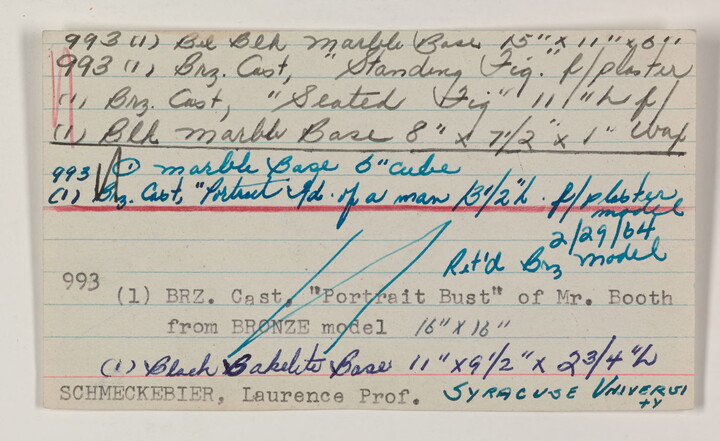 993 (1) Bel Blk marble Base 15" x 11" x 6"
993 (1) Brz. Cast, "Standing Fig." f/plaster
(1) Brz. Cast, "Seated Fig" 11 "h f/
(1) Blk marble Base 8" x 7 1/2" x 1" wax
993 (1) marble Base 6" cube
(1) Brz. Cast, "Portrait Hd. of a man 13 1/2"h. f/plaster
model
2/29/64
Ret'd Brz model
993
(1) BRZ. Cast, "Portrait Bust" of Mr. Booth
from BRONZE model 16" x 16"
(1) Black Bakelite Base 11" x 9 1/2" x 2 3/4 "h
SCHMECKEBIER, Laurence Prof. SYRACUSE UNIVERSI
TY